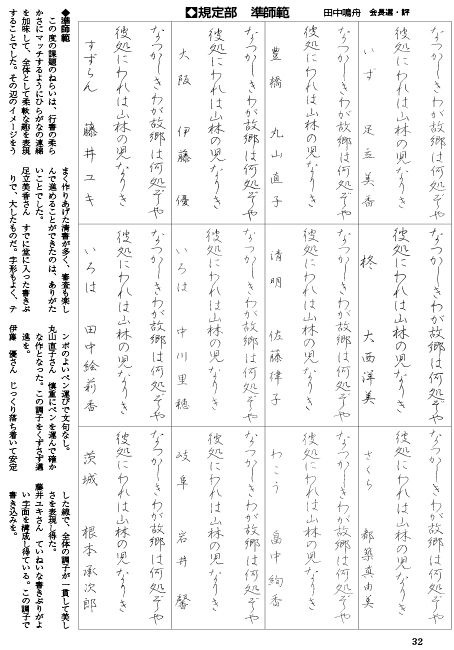 ◆規定部　準師範
田中鳴舟　会長選・評
なつかしきわが故郷は何処ぞや
彼処にわれは山林の児なりき
いず　足立美香
なつかしきわが故郷は何処ぞや
彼処にわれは山林の児なりき
豊橋　丸山直子
なつかしきわが故郷は何処ぞや
彼処にわれは山林の児なりき
大阪　伊藤　優
なつかしきわが故郷は何処ぞや
彼処にわれは山林の児なりき
すずらん　藤井ユキ
なつかしきわが故郷は何処ぞや
彼処にわれは山林の児なりき
柊　大西洋美
なつかしきわが故郷は何処ぞや
彼処にわれは山林の児なりき
清明　佐藤律子
なつかしきわが故郷は何処ぞや
彼処にわれは山林の児なりき
いろは　中川里穂
なつかしきわが故郷は何処ぞや
彼処にわれは山林の児なりき
いろは　田中絵莉香
なつかしきわが故郷は何処ぞや
彼処にわれは山林の児なりき
さくら　都築真由美
なつかしきわが故郷は何処ぞや
彼処にわれは山林の児なりき
わこう　畠中絢香
なつかしきわが故郷は何処ぞや
彼処にわれは山林の児なりき
岐阜　岩井　馨
なつかしきわが故郷は何処ぞや
彼処にわれは山林の児なりき
茨城　根本承次郎
◆準師範
この度の課題のねらいは、行書の柔ら
かさにマッチするようにひらがなの連綿
を加味して、全体として柔軟な趣を表現
することでした。その辺のイメージをう
まく作りあげた清書が多く、審査も楽し
んで進めることができたのは、ありがた
いことでした。
足立美香さん　すでに堂に入った書きぶ
りで、大したものだ。字形もよく、テ
ンポのよいペン運びで文句なし。
丸山直子さん　慎重にペンを運んで確か
な作となった。この調子をくずさず邁
進を。
伊藤　優さん　じっくり落ち着いて安定
した線で、全体の調子が一貫して美し
さを表現し得た。
藤井ユキさん　ていねいな書きぶりがよ
い字面を構成し得ている。この調子で
書き込みを。
32